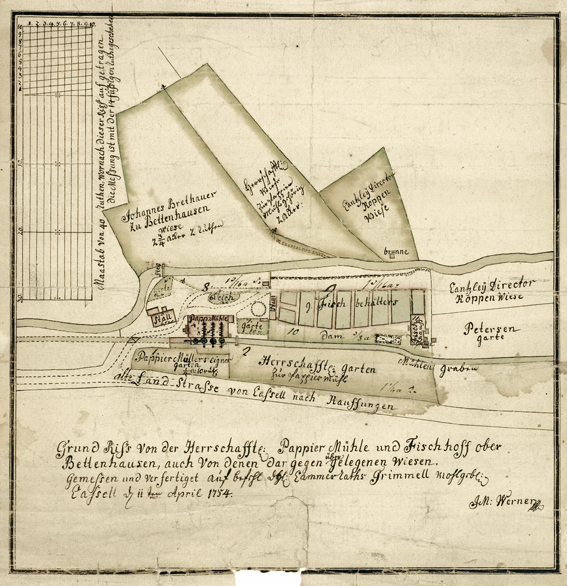 Maasstab von 40 Ruthen, Wornach dieser Riss auf getragen
die Messung ist mit der 14 füssigen Ruthe geschehen
Johannes Brethauer
zu Bettenhausen
Wiese
Herrschafftl:
Wiese
zur Papier
Acker
Cantzley Director
Röppen
Wiese
brunne
Cantzley Director
Röppen Wiese
Petersen
garte
Steg
8
Teich
Stall
Papp: Mühle
garte
9 Fisch behälters
10
Dam
Mühlen graben
Pappier Müllers eigner
garten
2
Herrschafftl: garten
zur Paffier Mühl
alte Land-Strasse von Cassell nach Kauffungen
Grund Riss von der Herrschafftl: Pappier Mühle und Fischhoff ober
Bettenhausen, auch von denen dar gegen über gelegenen Wiesen.
Gemessen und verfertiget auf befehl des Cammer Raths Grimmell
Cassell d 11 ten April 1754.
J.M: Werner